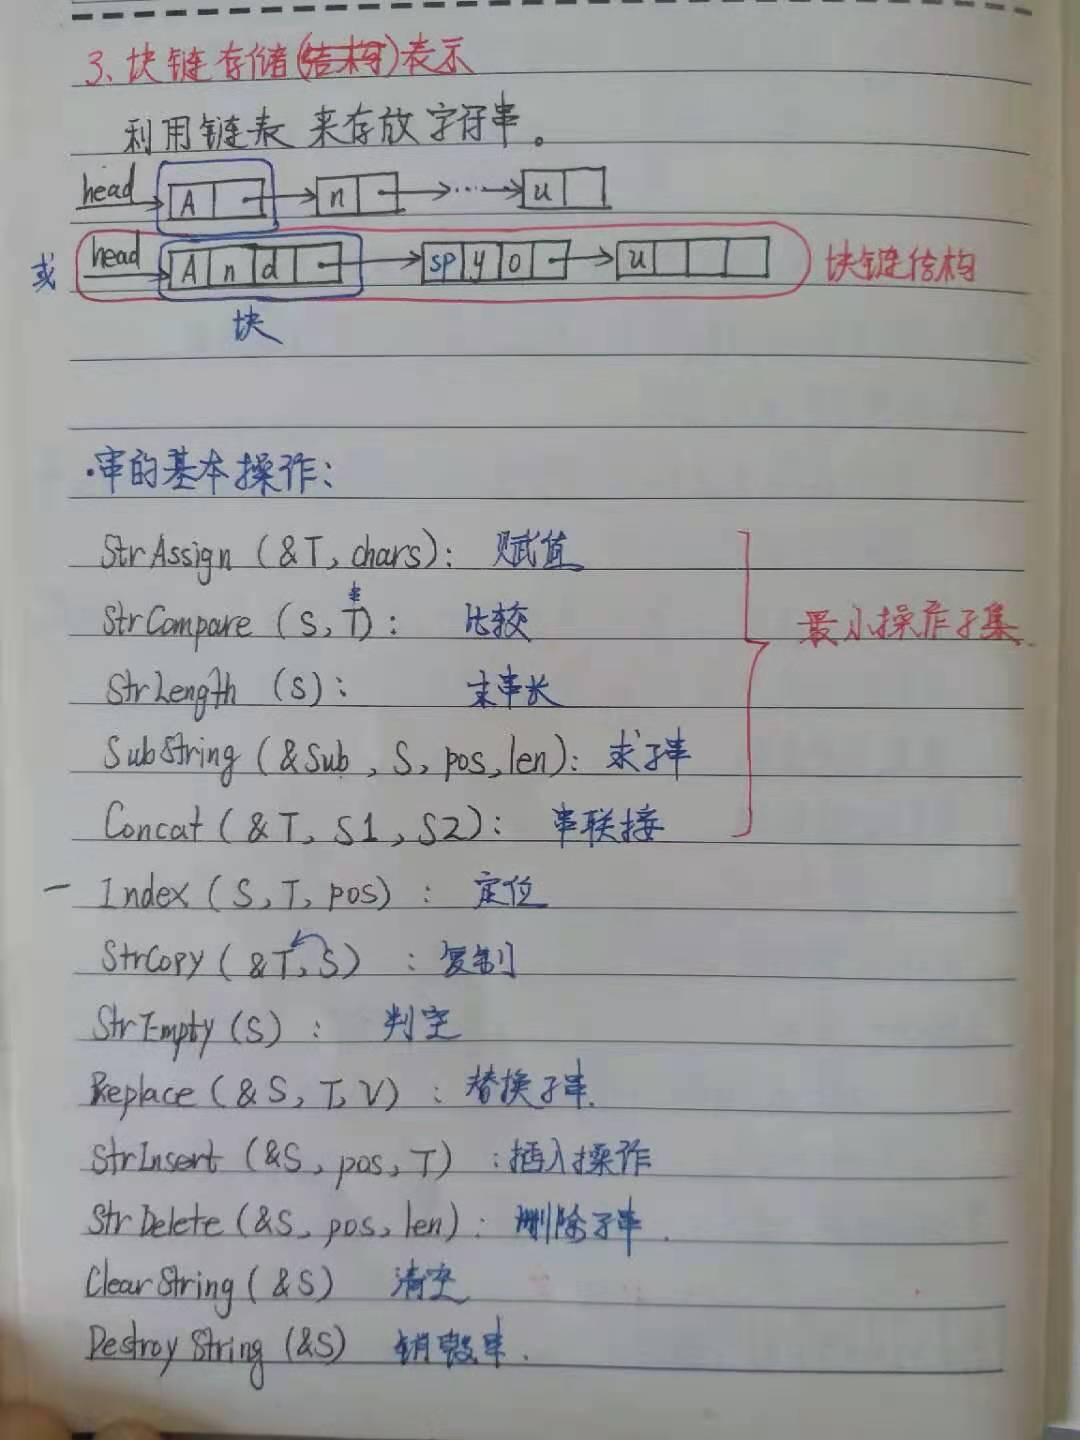 3、块链存储(结构)表示
利用链表来存放字符串。
head A n ... u
或 head A n d sp y o u 块链结构
块
·串的基本操作:
StrAssign (&T, chars): 赋值
StrCompare (S, T): 比较
StrLength (S): 求串长
最小操作子集
SubString (&Sub, S, pos, len): 求子串
Concat (&T, S1, S2): 串联接
- Index (S, T, pos) : 定位
StrCopy (&T, S) : 复制
StrEmpty (S) : 判空
Replace (&S, T, V) : 替换子串.
StrInsert (&S, pos, T) : 插入操作
StrDelete (&S, pos, len) : 删除子串.
ClearString (&S) 清空
DestroyString (&S) 销毁串.